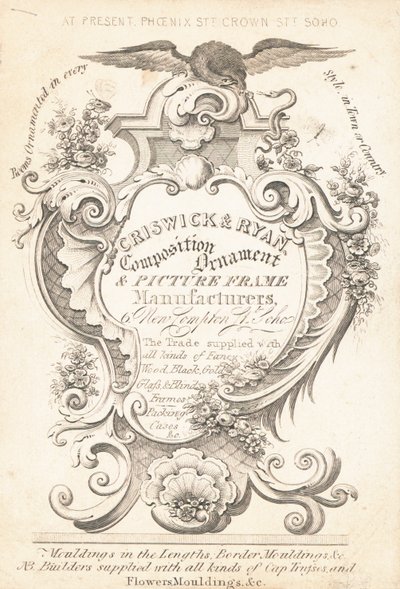 AT PRESENT, PHŒNIX STT CROWN STT SOHO.
Rooms Ornamented in every
Style, in Town or Country
CRISWICK & RYAN
Composition
Ornament
& PICTURE FRAME
Manufacturers,
6 New Compton St. Soho
The Trade supplied with
all kinds of Fancy
Wood, Black, Gold
Glass, & Blind
Frames
Packing
Cases
&c.
Mouldings in the Lengths, Border Mouldings, &c.
NB. Builders supplied with all kinds of Cap Trusses, and
Flowers Mouldings, &c.